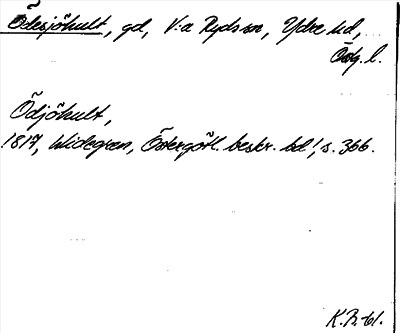 Ödesjöhult, gd, V:a Ryds sn, Ydre hd,
Östg. l.
Ödjöhult,
1817, Widegren, Östergötl. beskr. bd 1, s. 366.
K.B.-61.